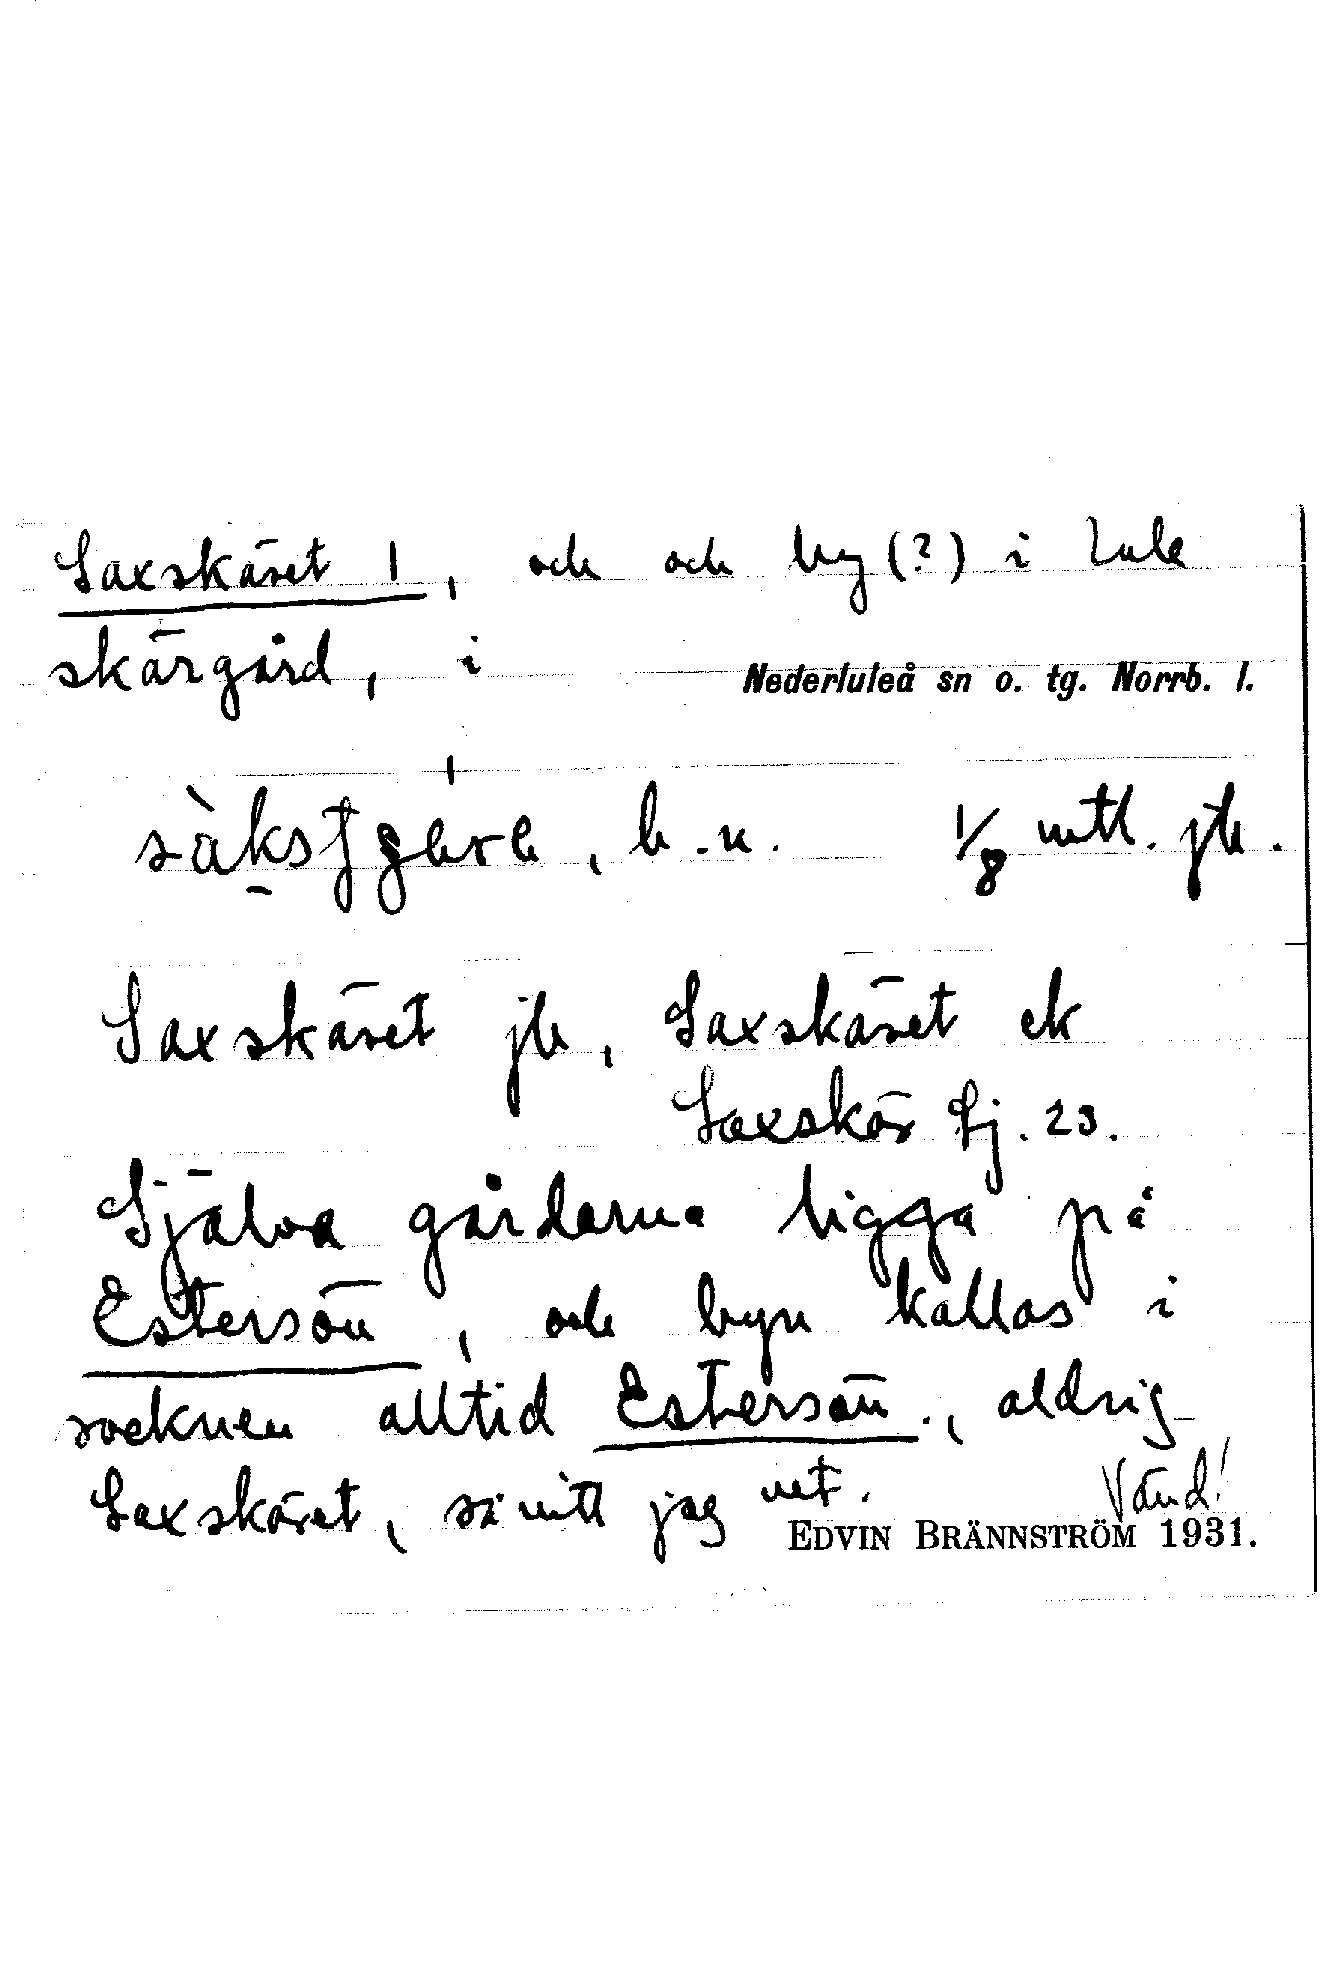 Saxskäret 1, och och by (?) i Lule
skärgård, i
Nederluleå sn o. tg. Norrb. l.
b.n. 1/8 mtl. jb.
Saxskäret jb, Saxskäret ek
Saxskär Sj. 23.
Själva gårdarna ligga på
Estersön, och byn kallas i
socknen alltid Estersön., aldrig
Saxskäret, så vitt jag vet. Vänd!
EDVIN BRÄNNSTRÖM 1931.